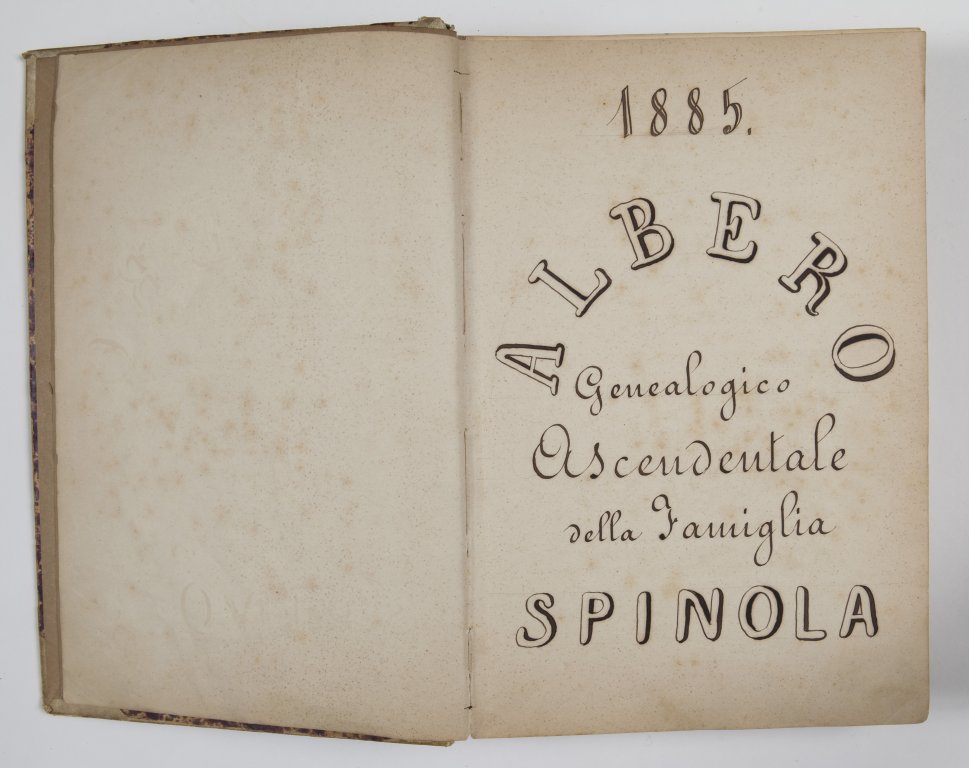 1885.
ALBERO
Genealogico
Ascendentale
della Famiglia
SPINOLA